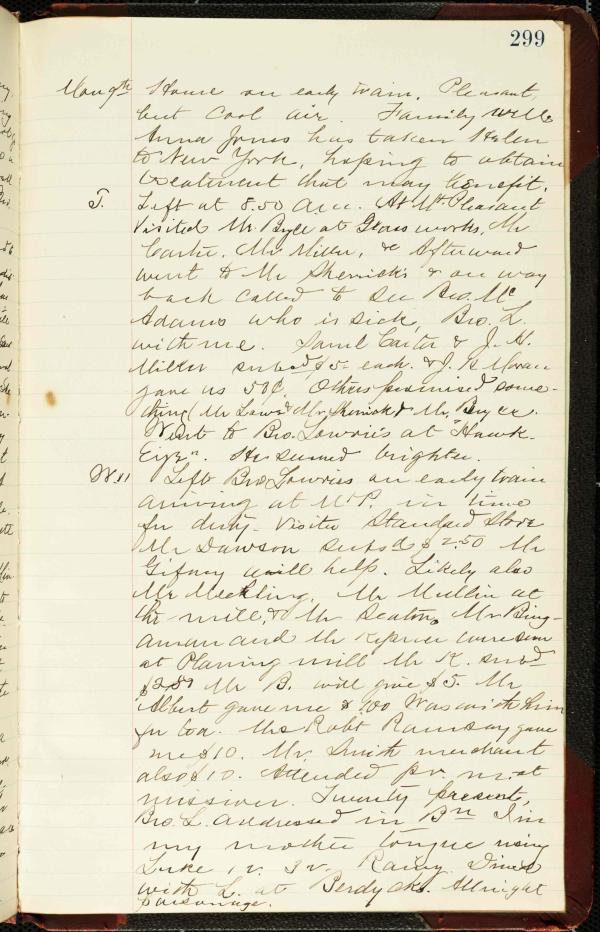 299
Mon 9th Home on early train. Pleasant
but cool air. Family well
Anna Jones has taken Helen
to New York, hoping to obtain
treatment that may benefit.
T. Left at 8.50 a.m. At Mt Pleasant
visited Mr Bryce at Glass works, Mr
Carter, Mr Miller, & Afterward
went to Mr Sherrick's & on way
back called to see Bro. Mc
Adams who is sick, Bro. L.
with me. Saml Carter & J. H.
Miller subsd $5 each. & J. B Moran
gave us 50¢. Others promised some-
thing Mr Mr Sherrick & Mr. Bryce.
Went to Bro. Lowries at "Hawk-
Eye". He seemed brighter.
W. 11 Left Bro Lowries on early train
arriving at Mt P. in time
for duty. Visited Standard Store
Mr Dawson subsd $2.50 Mr
will help. Likely also
Mr Mechling, Mr Mullin at
the mill, & Mr Seaton, Mr Bing-
aman and Mr were seen
at Planing mill Mr K. subd
Mr B. will give $5. Mr
Albert gave me Was with him
for tea. Mrs Robt Ramsay gave
me $10. Mr. Smith merchant
also $10. Attended pr. m. at
mission. Twenty present,
Bro. L. addressed in Bn I in
my mother tongue using
Luke 1v. 3v. Rainy. Dined
with L. at All night
parsonage.